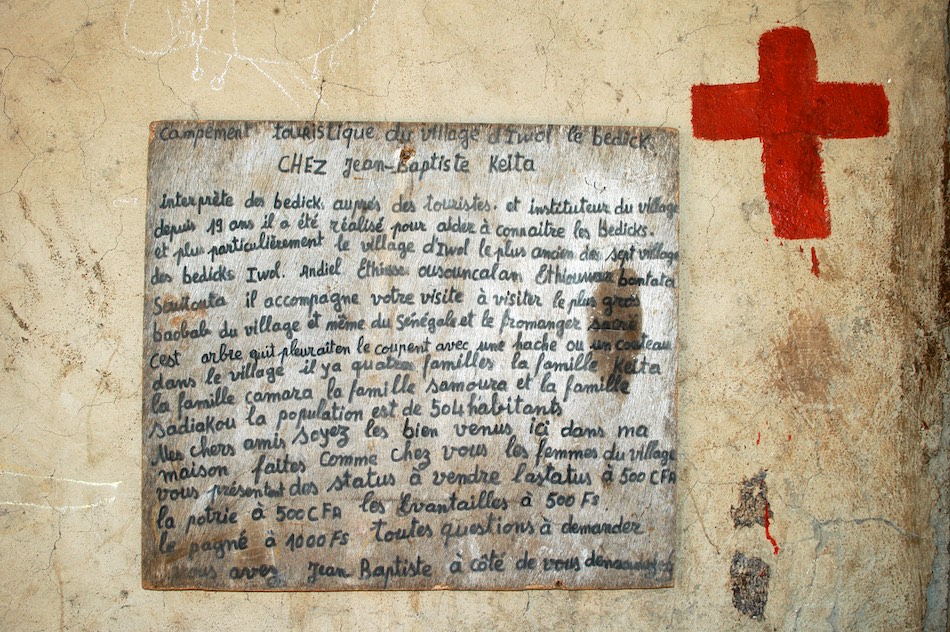 campement touristique du village d'Iwol le bedick
CHEZ Jean-Baptiste Keita
interprète des bedick. auprès des touristes. et instituteur du village
depuis 19 ans il a été réalisé pour aider à connaitre les Bedicks.
et plus particulièrement le village d'Iwol le plus ancien des sept village
des bedicks Iwol. Andiel Ethiesse ousouncalan bantata
il accompagne votre visite à visiter le plus gros
baobab du village et même du Sénégale et le fromanger sacré
cest arbre quit pleuraiten le coupent avec une hache ou un couteau
dans le village il ya quatre familles la famille Keita
la famille camara la famille samoura et la famille
sadiakou la population est de 504 habitants
Mes chers amis soyez les bien venus ici dans ma
maison faites comme chez vous les femmes du village
vous présentent des status à vendre lastatus à 500 CFA
la potrie à 500 CFA les Evantailles à 500 FS
le pagné à 1000 FS toutes questions à demander
vous avez Jean Baptiste à côté de vous